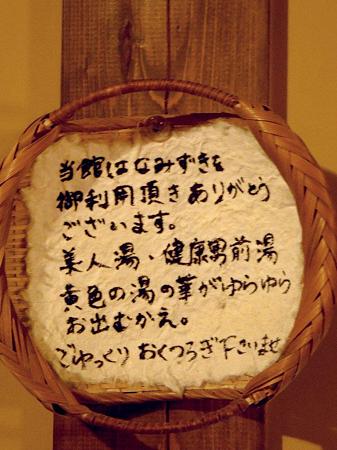 当館はなみずきを
御利用頂きありがとう
ございます。
美人湯・健康男前湯
黄色の湯の華がゆらゆら
お出むかえ。
ごゆっくりおくつろぎ下さいませ